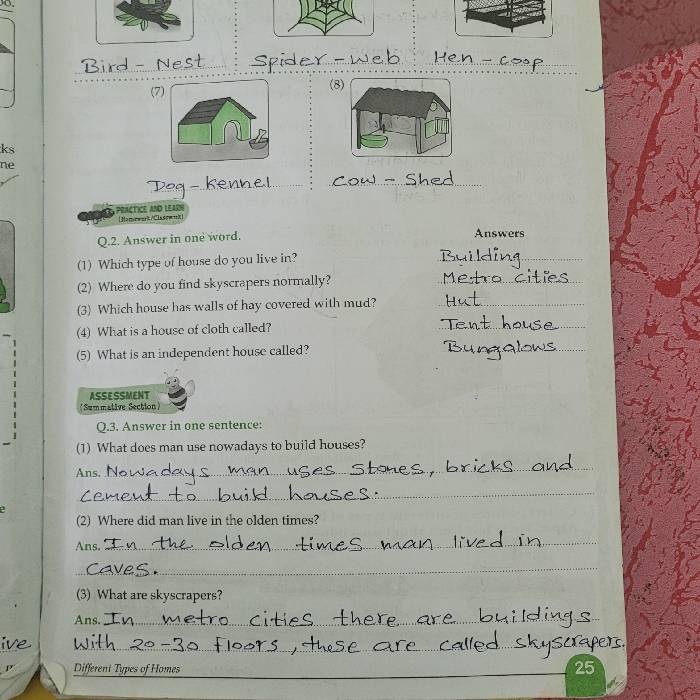 Bird - Nest Spider - Web Hen - coop
(7) (8)
Dog - kennel cow - Shed
PRACTICE AND LEARN
(Homework/Classwork)
Q.2. Answer in one word. Answers
(1) Which type of house do you live in? Building
(2) Where do you find skyscrapers normally? Metro cities
(3) Which house has walls of hay covered with mud? Hut
(4) What is a house of cloth called? Tent house
(5) What is an independent house called? Bungalows
ASSESSMENT
(Summative Section)
Q.3. Answer in one sentence:
(1) What does man use nowadays to build houses?
Ans. Nowadays man uses stones, bricks and
cement to build houses.
(2) Where did man live in the olden times?
Ans. In the olden times man lived in
caves.
(3) What are skyscrapers?
Ans. In metro cities there are buildings
With 20-30 floors, these are called skyscrapers.
Different Types of Homes 25